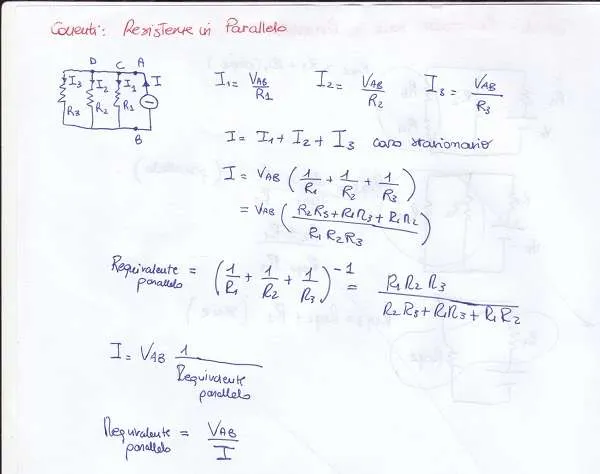 Correnti: Resistenze in Parallelo
D C A
I3 I2 I1 I
R3 R2 R1
B
I1 = VAB/R1 I2 = VAB/R2 I3 = VAB/R3
I = I1 + I2 + I3 caso stazionario
I = VAB (1/R1 + 1/R2 + 1/R3)
= VAB (R2R3 + R1R3 + R1R2 / R1R2R3)
Requivalente parallelo = (1/R1 + 1/R2 + 1/R3)^-1 = R1R2R3 / R2R3 + R1R3 + R1R2
I = VAB 1/Requivalente parallelo
Requivalente parallelo = VAB/I